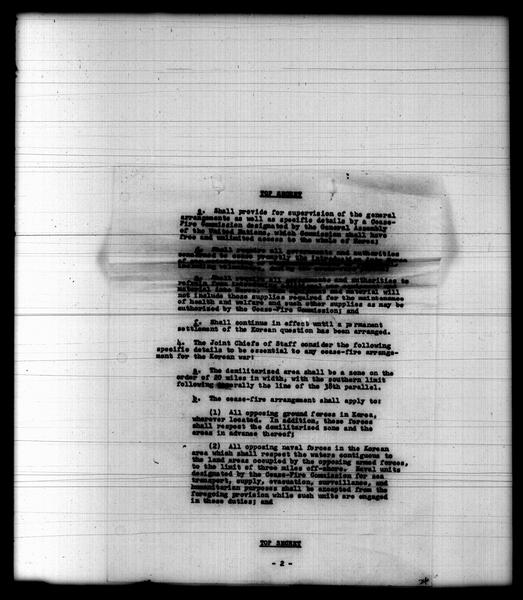 TOP SECRET
c. Shall provide for supervision of the general
arrangements as well as specific details by a Cease-
Fire Commission designated by the General Assembly
of the United Nations, which Commission shall have
free and unlimited access to the whole of Korea;
d. Shall require all governments and authorities
concerned to cease promptly the introduction
including volunteers,
e. Shall require all governments and authorities to
refrain from
material into Korea. and material will
not include those supplies required for the maintenance
of health and welfare and such other supplies as may be
authorized by the Cease-Fire Commission; and
f. Shall continue in effect until a permanent
settlement of the Korean question has been arranged.
4. The Joint Chiefs of Staff consider the following
specific details to be essential to any cease-fire arrange-
ment for the Korean war:
a. The demilitarized area shall be a zone on the
order of 20 miles in width, with the southern limit
following generally the line of the 38th parallel.
b. The cease-fire arrangement shall apply to:
(1) All opposing ground forces in Korea,
wherever located. In addition, these forces
shall respect the demilitarized zone and the
areas in advance thereof;
(2) All opposing naval forces in the Korean
area which shall respect the waters contiguous to
the land areas occupied by the opposing armed forces,
to the limit of three miles off-shore. Naval units
designated by the Cease-Fire Commission for sea
transport, supply, evacuation, surveillance, and
humanitarian purposes shall be excepted from the
foregoing provision while such units are engaged
in these duties; and
TOP SECRET
- 2 -